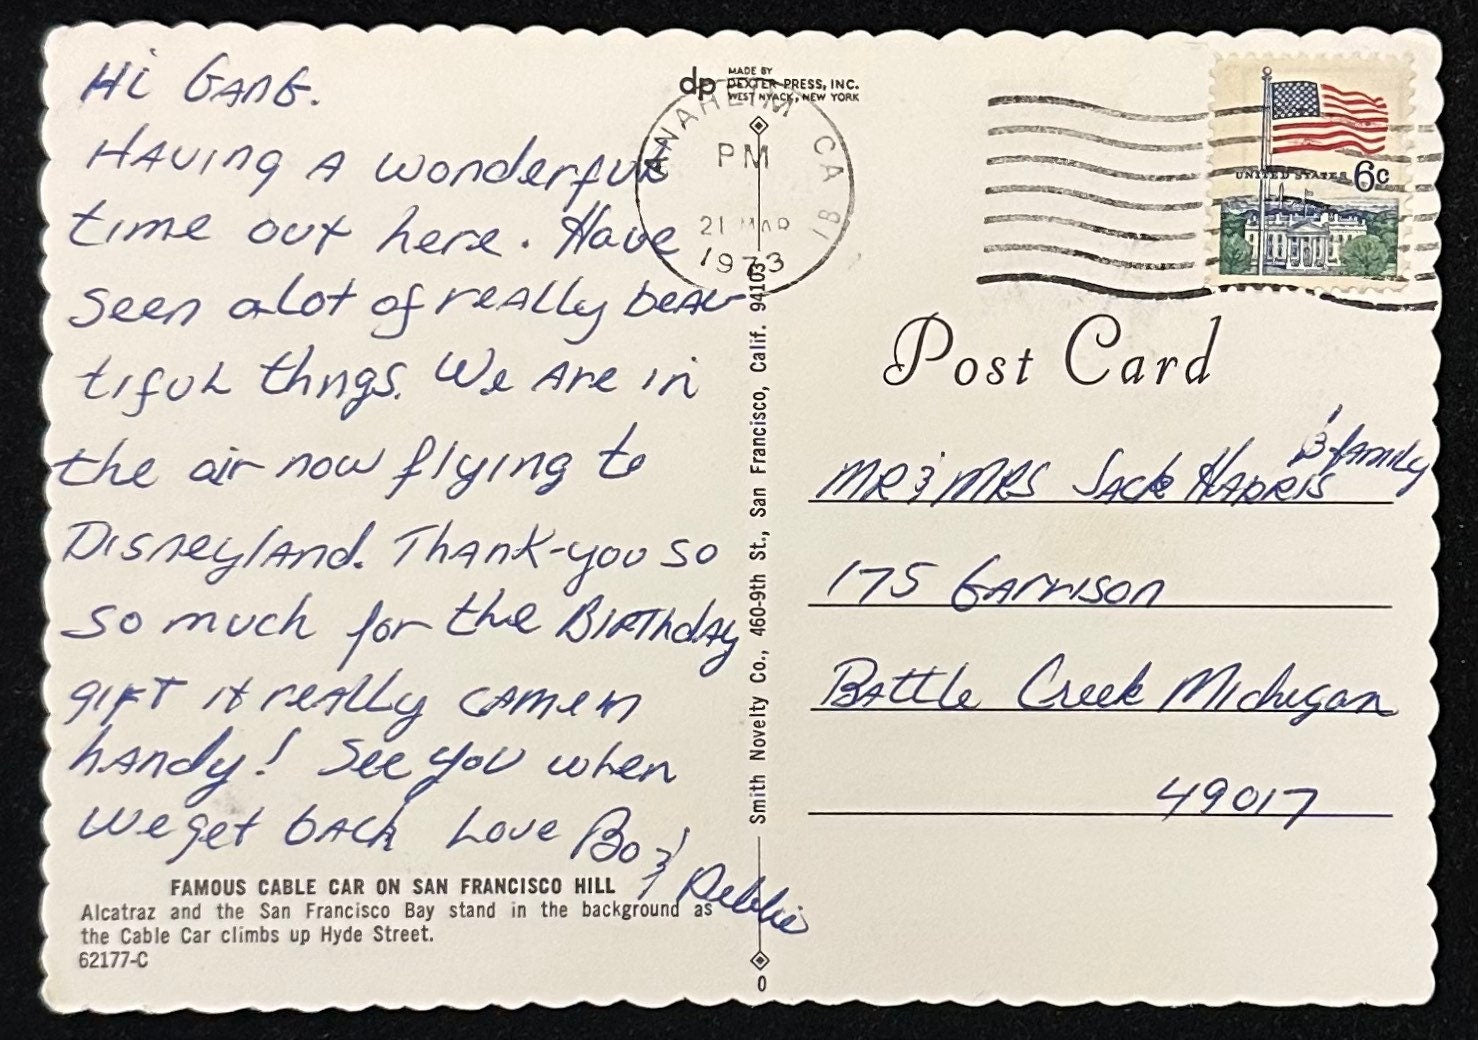 Hi Gang.
Having a wonderful
time out here. Have
seen alot of really beau-
tiful thngs. We are in
the air now flying to
Disneyland. Thank-you so
so much for the Birthday
gift it really came in
handy! See you when
we get back Love Bo &
Debbie
FAMOUS CABLE CAR ON SAN FRANCISCO HILL
Alcatraz and the San Francisco Bay stand in the background as
the Cable Car climbs up Hyde Street.
62177-C
dp MADE BY
DEXTER PRESS, INC.
WEST NYACK, NEW YORK
ANAHEIM CA
PM
21 MAR
1973
Smith Novelty Co., 460-9th St., San Francisco, Calif. 94103
0
UNITED STATES 6c
Post Card
& family
MR & MRS Jack Harris
175 Garrison
Battle Creek Michigan
49017